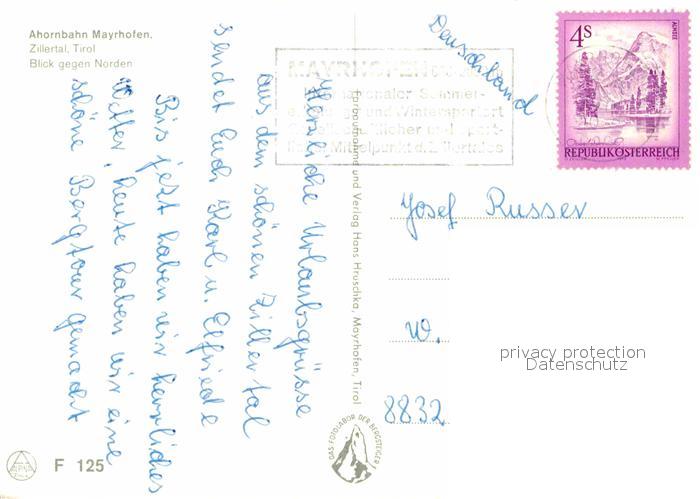 Ahornbahn Mayrhofen.
Zillertal, Tirol
Blick gegen Norden
Herzliche Urlaubsgrüsse
aus dem schönen Zillertal
sendet Euch Karl u. Elfriede
Bis jetzt haben wir herrliches
Wetter, heute haben wir eine
schöne Bergtour gemacht
Farbaufnahme und Verlag Hans Hruschka, Mayrhofen, Tirol
MAYRHOFEN
internationaler Sommer-
und Wintersportort
Gesellschaftlicher und sport-
licher Mittelpunkt d. Zillertales
Deuschland
4S
ALMSEE
REPUBLIK ÖSTERREICH
Josef Russer
W.
8832
privacy protection
Datenschutz
DAS FOTOLABOR DER BERGSTEIGER
F 125